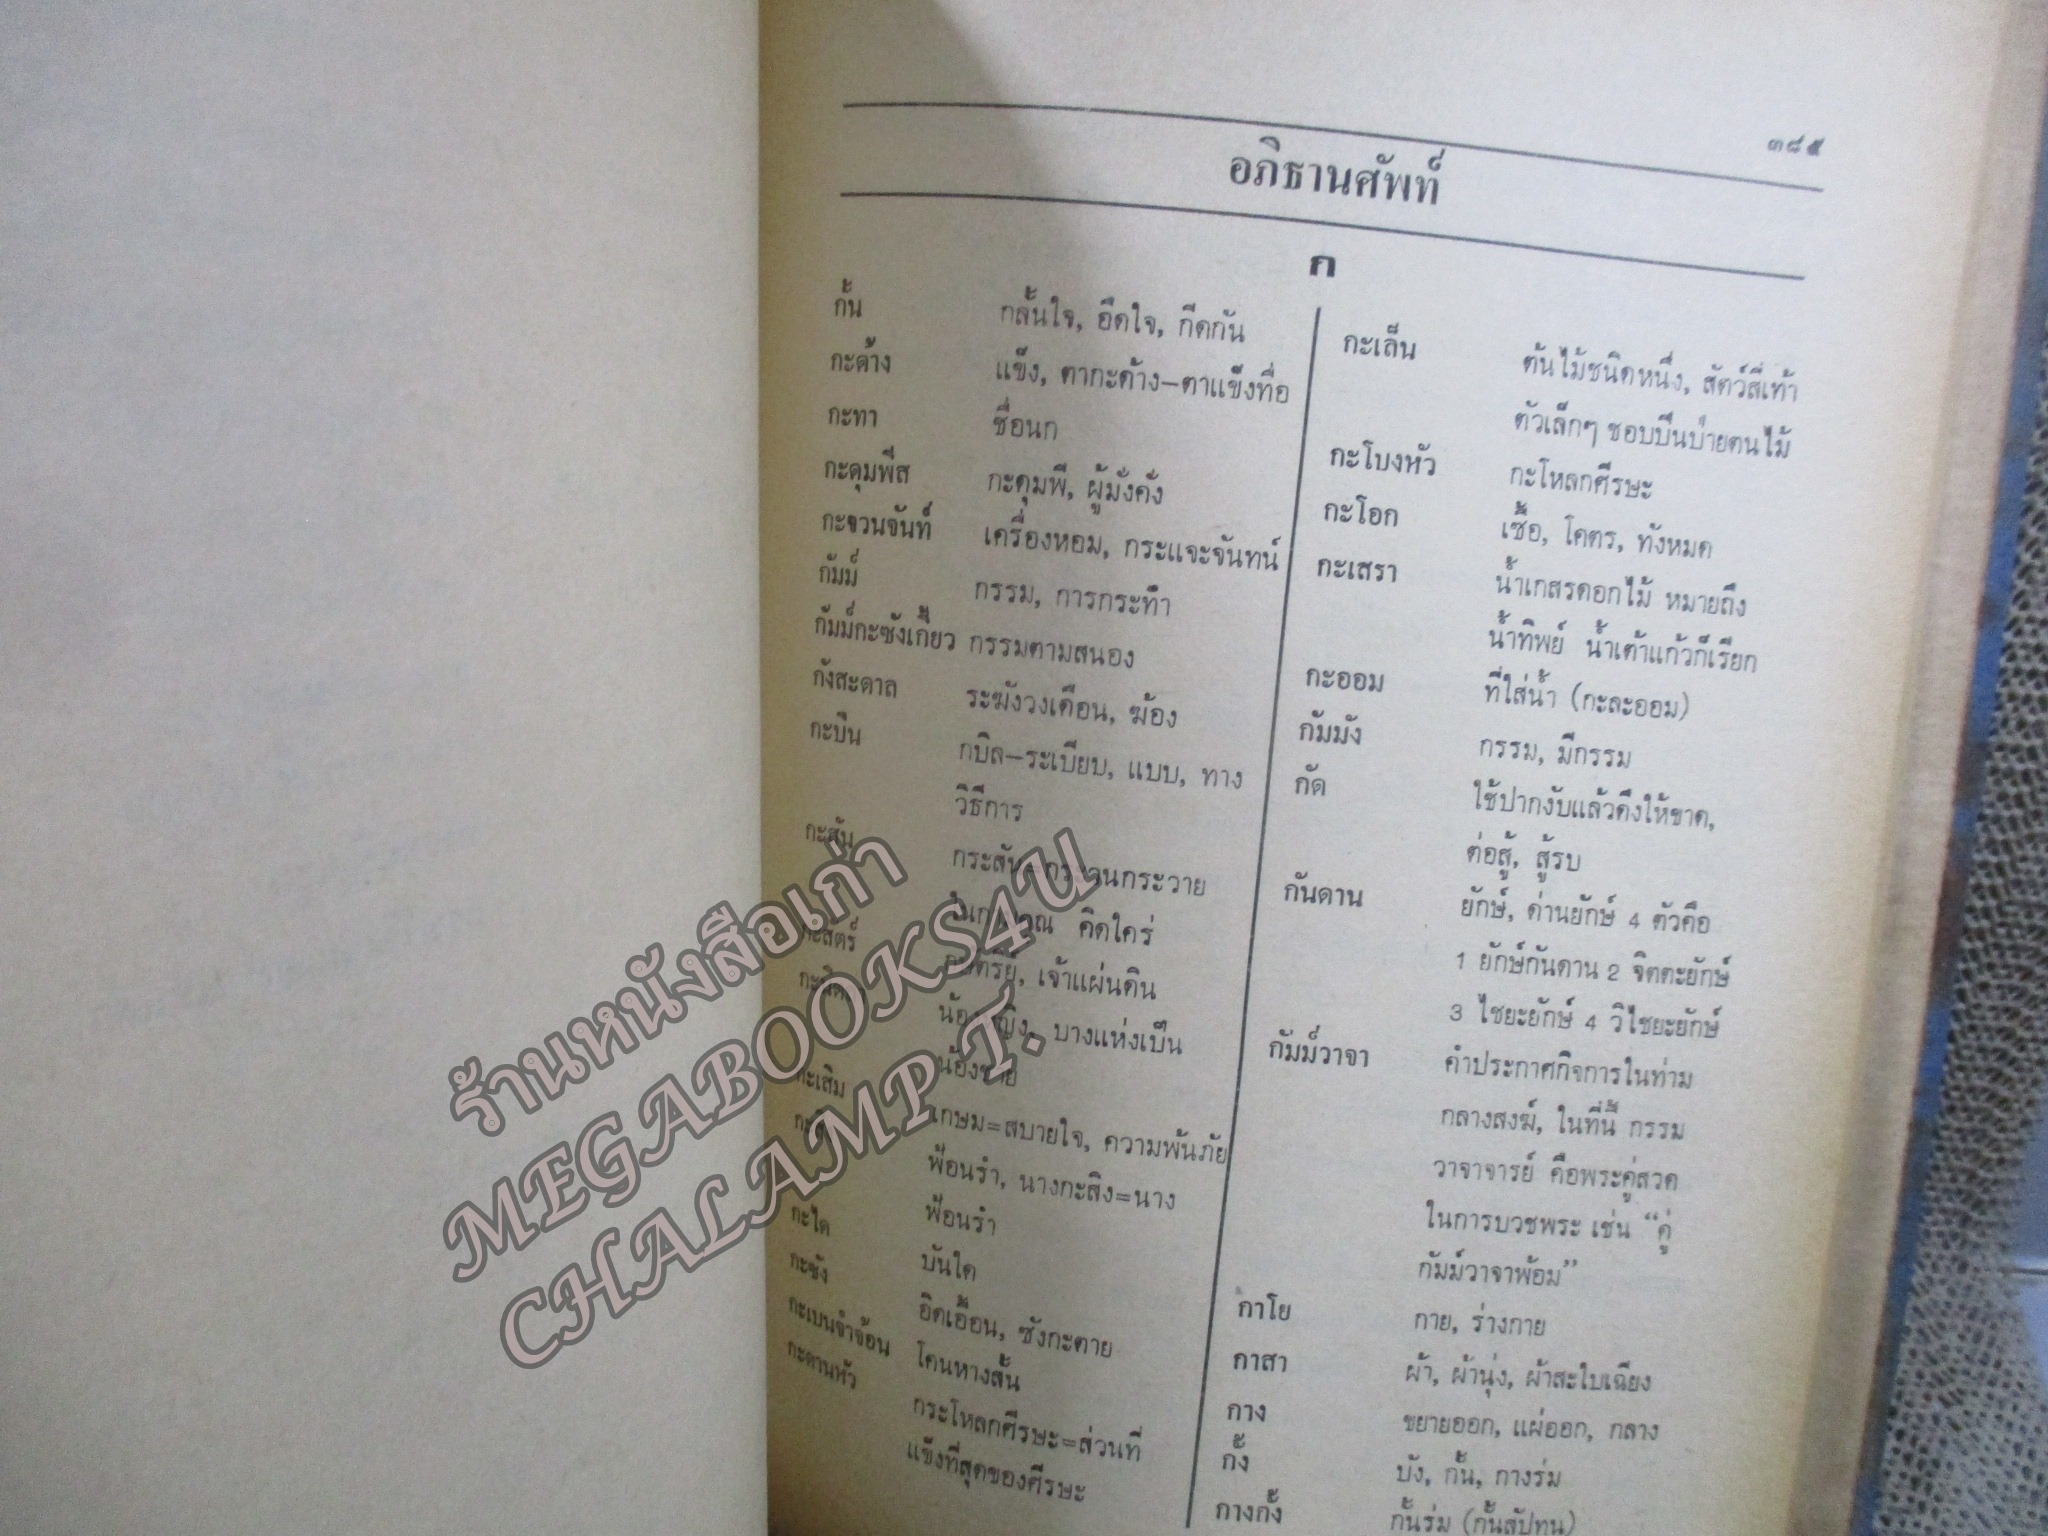 ๓๘๕
อภิธานศัพท์
ก
กั้น กลั้นใจ, อึดใจ, กีดกัน
กะด้าง แข็ง, ตากะด้าง–ตาแข็งทื่อ
กะทา ชื่อนก
กะดุมพีส กะดุมพี, ผู้มั่งคั่ง
กะจวนจันท์ เครื่องหอม, กระแจะจันทน์
กัมม์ กรรม, การกระทำ
กัมม์กะซังเกี้ยว กรรมตามสนอง
กังสะดาล ระฆังวงเดือน, ฆ้อง
กะบิน กบิล–ระเบียบ, แบบ, ทาง
วิธีการ
กะสัน กระสัน=กระวนกระวาย
ในกามคุณ คิดใคร่
กะสัตร์ กษัตริย์, เจ้าแผ่นดิน
น้องหญิง, บางแห่งเป็น
น้องชาย
กะเสิม เกษม=สบายใจ, ความพ้นภัย
ฟ้อนรำ, นางกะสิง=นาง
ฟ้อนรำ
กะได บันได
กะซัง อิดเอื้อน, ซังกะตาย
กะเบนจำจ้อน โคนหางสั้น
กะดานหัว กระโหลกศีรษะ=ส่วนที่
แข็งที่สุดของศีรษะ
กะเล็น ต้นไม้ชนิดหนึ่ง, สัตว์สี่เท้า
ตัวเล็กๆ ชอบปีนป่ายตนไม้
กะโบงหัว กะโหลกศีรษะ
กะโอก เชื้อ, โคตร, ทั้งหมด
กะเสรา น้ำเกสรดอกไม้ หมายถึง
น้ำทิพย์ น้ำเต้าแก้วก็เรียก
กะออม ที่ใส่น้ำ (กะละออม)
กัมมัง กรรม, มีกรรม
กัด ใช้ปากงับแล้วดึงให้ขาด,
ต่อสู้, สู้รบ
กันดาน ยักษ์, ด่านยักษ์ 4 ตัวคือ
1 ยักษ์กันดาน 2 จิตตะยักษ์
3 ไชยะยักษ์ 4 วิไชยะยักษ์
กัมม์วาจา คำประกาศกิจการในท่าม
กลางสงฆ์, ในที่นี้ กรรม
วาจาจารย์ คือพระคู่สวด
ในการบวชพระ เช่น “คู่
กัมม์วาจาพ้อม”
กาโย กาย, ร่างกาย
กาสา ผ้า, ผ้านุ่ง, ผ้าสะใบเฉียง
กาง ขยายออก, แผ่ออก, กลาง
กั้ง บัง, กั้น, กางร่ม
กางกั้ง กั้นร่ม (กั้นสัปทน)
ร้านหนังสือเก่า
MEGABOOKS4U
CHALAMP T.